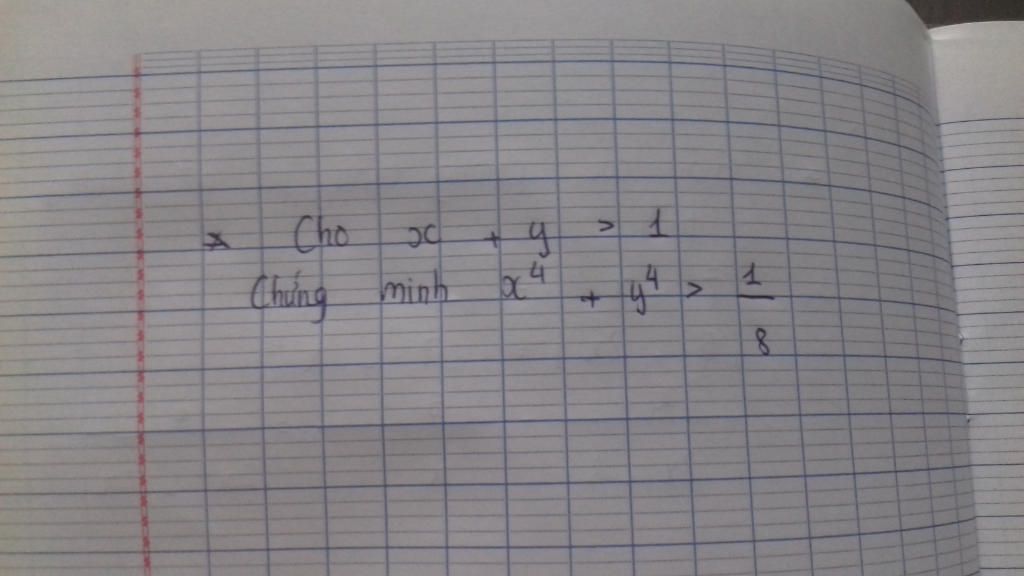 * Cho x + y > 1
Chứng minh x⁴ + y⁴ > 1/8